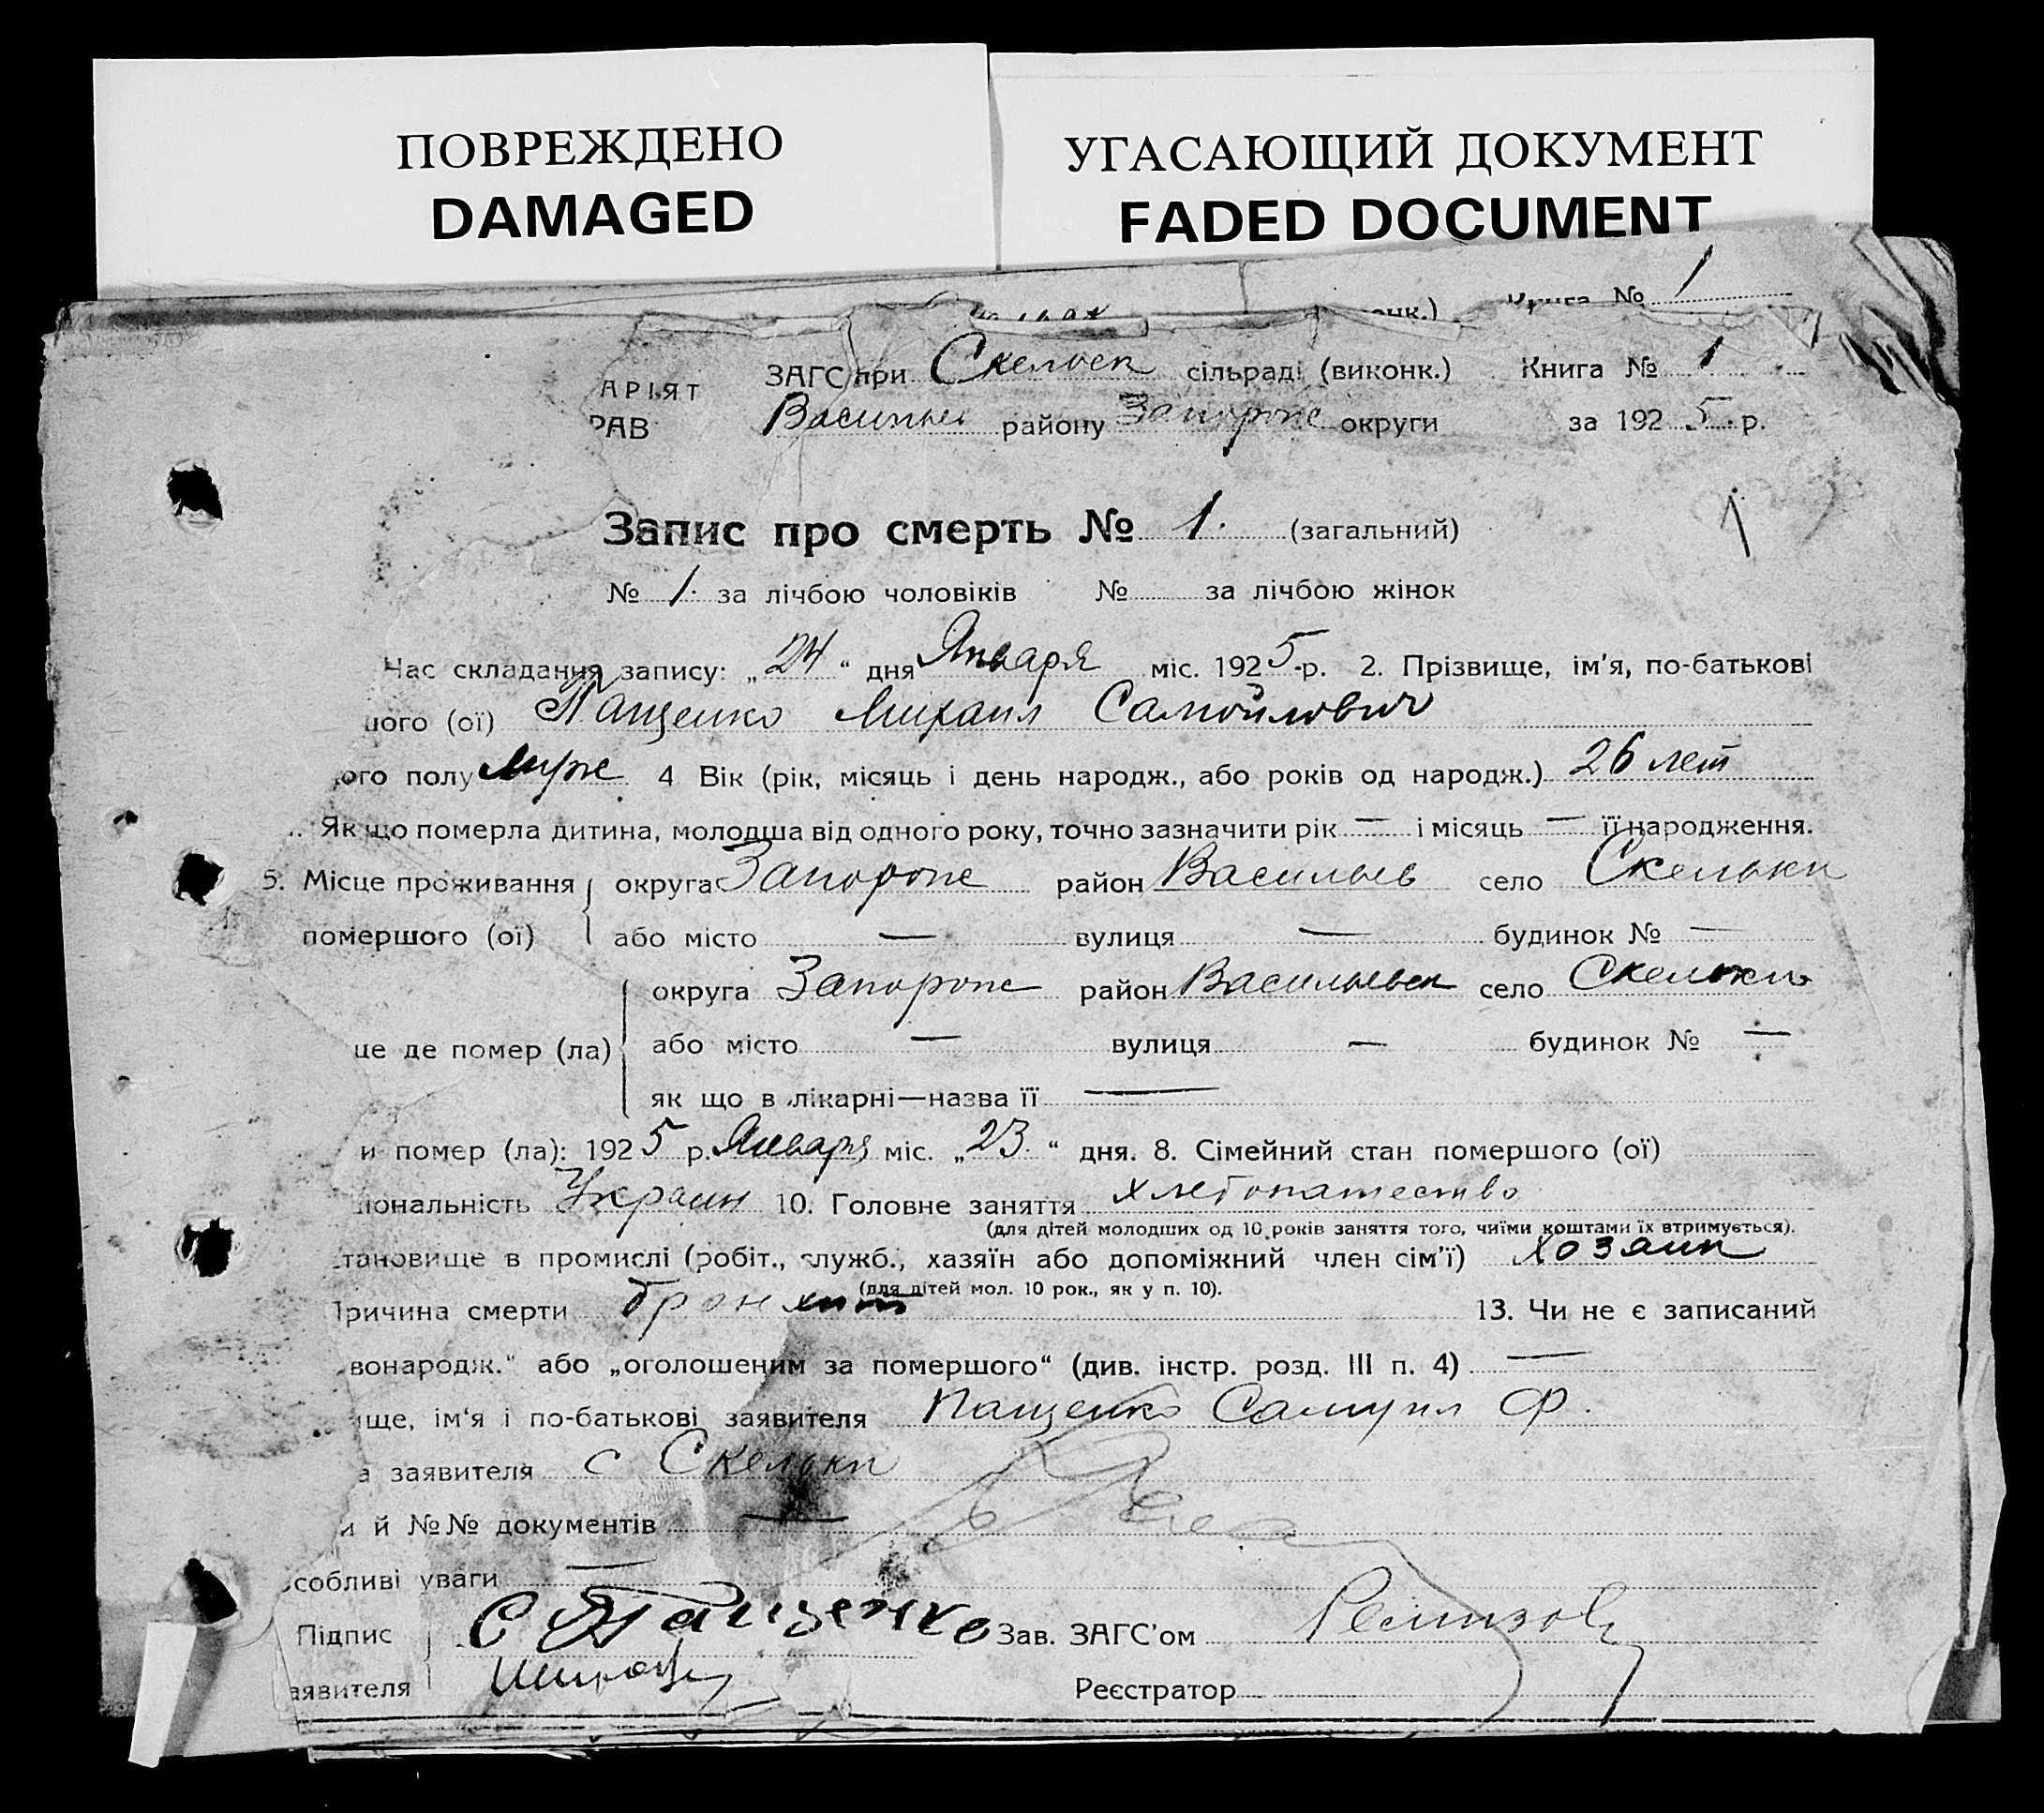 ПОВРЕЖДЕНО
DAMAGED
УГАСАЮЩИЙ ДОКУМЕНТ
FADED DOCUMENT
Книга № 1
онк.)
АРІЯТ ЗАГС при Скельск сільраді (виконк.) Книга № 1
РАВ Васильев району Запорож округи за 1925 р.
Запис про смерть № 1. (загальний)
№ 1. за лічбою чоловіків № за лічбою жінок
Час складання запису: „24“ дня Января міс. 1925 р. 2. Прізвище, ім'я, по-батькові
шого (ої) Пащенко Михаил Самойлович
ого полу муж 4 Вік (рік, місяць і день народж., або років од народж.) 26 лет
Як що померла дитина, молодша від одного року, точно зазначити рік — і місяць — її народження.
5. Місце проживання округа Запорож район Васильев село Скельки
помершого (ої) або місто — вулиця — будинок № —
округа Запорож район Васильевск село Скельки
це де помер (ла) або місто — вулиця — будинок № —
як що в лікарні—назва її —
и помер (ла): 1925 р. Января міс. „23.“ дня. 8. Сімейний стан помершого (ої)
іональність Украин 10. Головне заняття хлебопашество
(для дітей молодших од 10 років заняття того, чиїми коштами їх втримується).
тановище в промислі (робіт., служб., хазяїн або допоміжний член сім'ї) хозаин
(для дітей мол. 10 рок., як у п. 10).
Причина смерти бронхит 13. Чи не є записаний
вонародж.“ або „оголошеним за помершого“ (див. інстр. розд. III п. 4) —
ище, ім'я і по-батькові заявителя Пащенко Самуил Ф.
а заявителя с Скельки
и й №№ документів —
собливі уваги —
Підпис С Пащенко Зав. ЗАГС'ом
аявителя Реєстратор